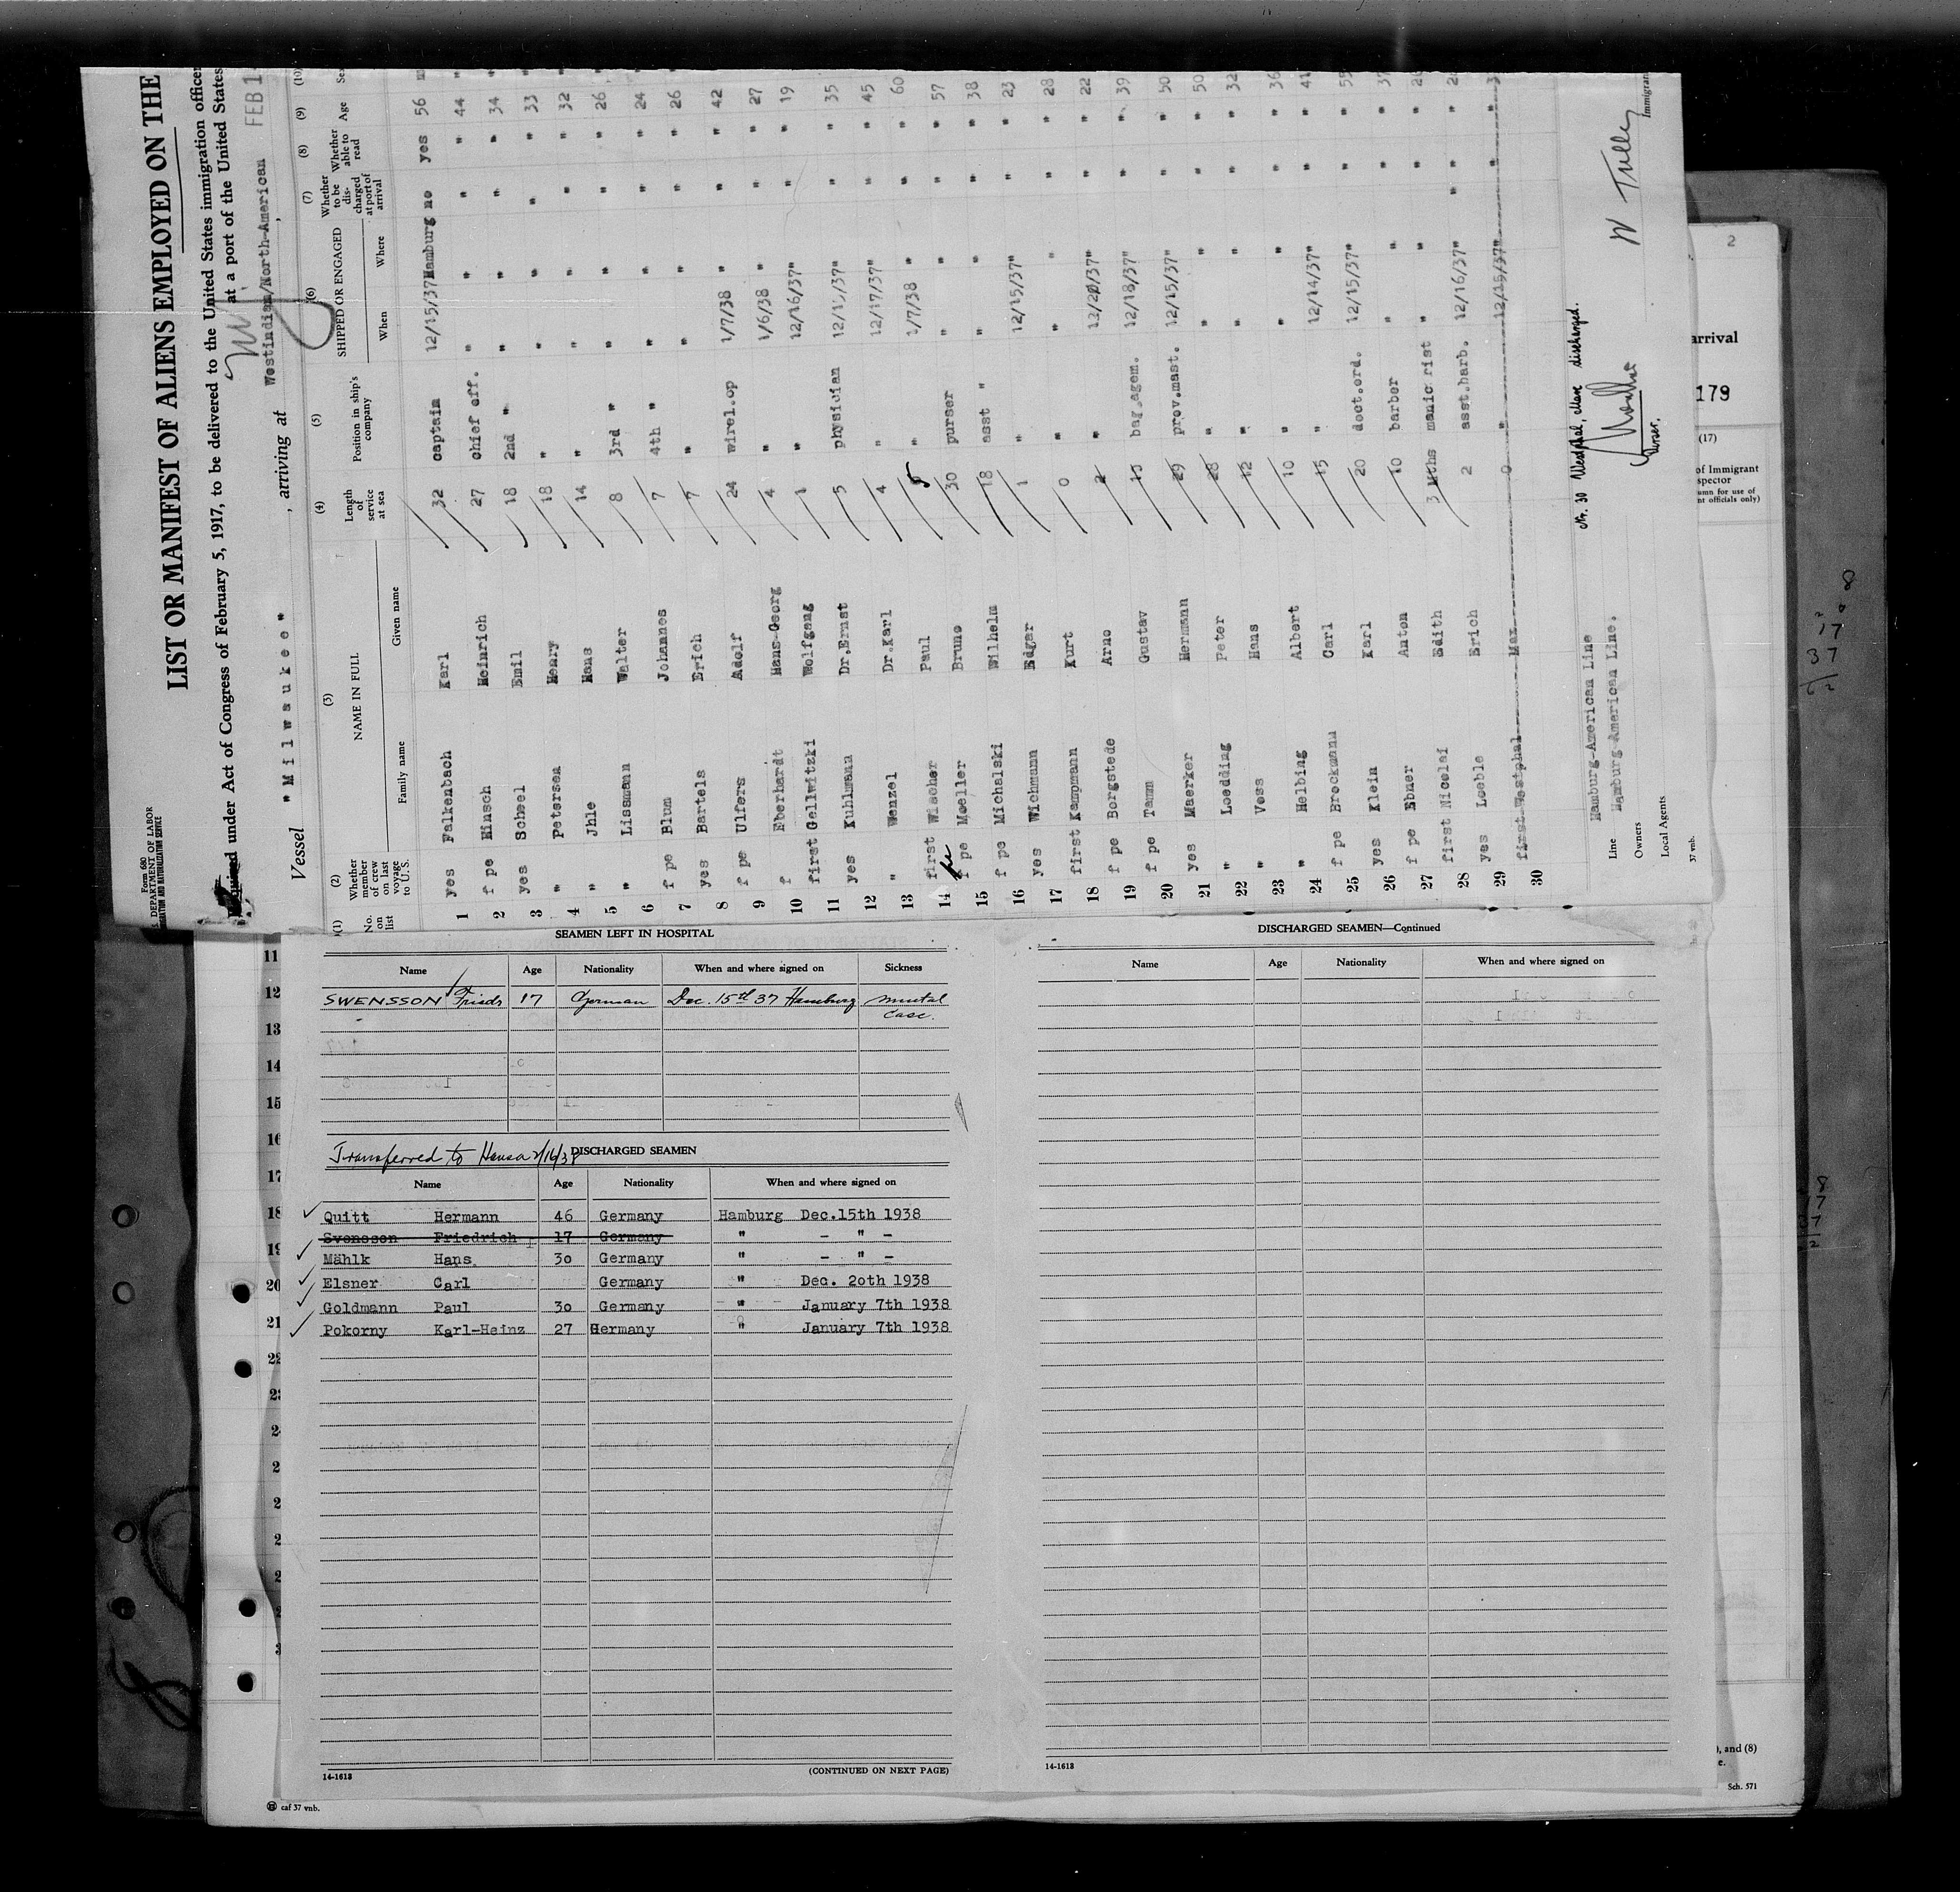 Form 680
U. S. DEPARTMENT OF LABOR
IMMIGRATION AND NATURALIZATION SERVICE
LIST OR MANIFEST OF ALIENS EMPLOYED ON THE
under Act of Congress of February 5, 1917, to be delivered to the United States immigration officer
at a port of the United States
Vessel "Milwaukee" , arriving at Westindian/North-American , FEB 1
(1) (2) (3) (4) (5) (6) (7) (8) (9) (10)
No. on list Whether member of crew on last voyage to U.S. NAME IN FULL Family name Given name Length of service at sea Position in ship's company SHIPPED OR ENGAGED When Where Whether to be discharged at port of arrival Whether able to read Age Sex
1 yes Falkenbach Karl 32 captain 12/15/37 Hamburg no yes 56 m
2 f pe Hinsch Heinrich 27 chief off. " " " " 44 "
3 yes Scheel Emil 18 2nd " " " " " 34 "
4 " Petersen Henry 18 " " " " " 33 "
5 " Jhle Hans 14 " " " " " 32 "
6 " Lissmann Walter 8 3rd " " " " " 26 "
7 f pe Blum Johannes 7 4th " " " " " 24 "
8 yes Bartels Erich 7 " " " " " 26 "
9 f pe Ulfers Adolf 24 wirel.op 1/7/38 " " " 42 "
10 f Eberhardt Hans-Georg 4 " 1/6/38 " " " 27
11 first Gellwitzki Wolfgang 1 " 12/16/37" " " 19
12 yes Kuhlmann Dr.Ernst 5 physician 12/15/37" " " 35
13 " Wenzel Dr.Karl 4 " 12/17/37" " " 45
14 first Wischer Paul " 1/7/38 " " " 60
15 f pe Moeller Bruno 30 purser " " " " 57
16 f pe Michalski Wilhelm 18 asst " " " " " 38
17 yes Wichmann Edgar 1 " 12/15/37" " " 23
18 first Kampmann Kurt 0 " " " " " 28
19 f pe Borgstede Arno 2 " 12/20/37" " " 22
20 f pe Tamm Gustav bag.agem. 12/18/37" " " 39
21 yes Maerker Hermann 29 prov.mast. 12/15/37" " " 50
22 " Loedding Peter 28 " " " " " 50
23 " Voss Hans 12 " " " " " 32
24 " Helbing Albert 10 " " " " " 36
25 f pe Brockmann Carl 15 " 12/14/37" " " 41
26 yes Klein Karl 20 doct.ord. 12/15/37" " " 55
27 f pe Ebner Anton 10 barber " " " "
28 first Nicolai Edith 3 Mths manicrist " " " "
29 yes Loeble Erich 2 asst.barb. 12/16/37" " "
30 first Westphal Max 0 " 12/15/37" " "
Line Hamburg-American Line
Owners Hamburg-American Line.
Local Agents
37 vnb.
Nr. 30 Westphal, Max discharged.
Purser.
W Tulley
Immigrant
2
arrival
179
(17)
of Immigrant
spector
umn for use of
nt officials only)
11
12
13
14
15
16
17
18
19
20
21
22
SEAMEN LEFT IN HOSPITAL
Name Age Nationality When and where signed on Sickness
SWENSSON Friedr 17 German Dec. 15th 37 Hamburg mental
case.
Transferred to Hansa 2/16/38 DISCHARGED SEAMEN
Name Age Nationality When and where signed on
Quitt Hermann 46 Germany Hamburg Dec.15th 1938
Svensson Friedrich 17 Germany " - " -
Mählk Hans 30 Germany " - " -
Elsner Carl Germany " Dec. 20th 1938
Goldmann Paul 30 Germany " January 7th 1938
Pokorny Karl-Heinz 27 Germany " January 7th 1938
14-1618 (CONTINUED ON NEXT PAGE)
DISCHARGED SEAMEN—Continued
Name Age Nationality When and where signed on
14-1618
), and (8)
e.
Sch. 571
caf 37 vnb.
8
17
37